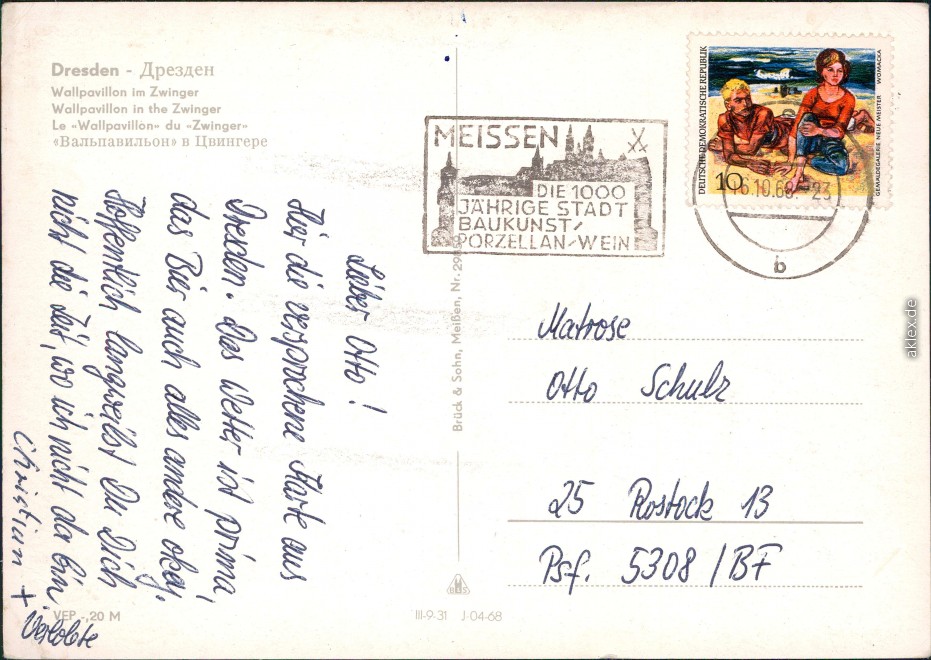 Dresden - Дрезден
Wallpavillon im Zwinger
Wallpavillon in the Zwinger
Le «Wallpavillon» du «Zwinger»
«Вальпавильон» в Цвингере
Lieber Otto!
Hier die versprochene Karte aus
Dresden. Das Wetter ist prima,
das Bier auch alles andere okay.
Hoffentlich langweilst Du Dich
nicht die Zeit, wo ich nicht da bin.
Christian +
Verlobte
VEP -,20 M
III-9-31 J-04-68
Brück & Sohn, Meißen, Nr. 29
MEISSEN
DIE 1000
JÄHRIGE STADT
BAUKUNST/
PORZELLAN/WEIN
DEUTSCHE DEMOKRATISCHE REPUBLIK
10
GEMÄLDEGALERIE NEUE MEISTER WOMACKA
16.10.68.-23
b
Matrose
Otto Schulz
25 Rostock 13
Psf. 5308 / BF
aklex.de